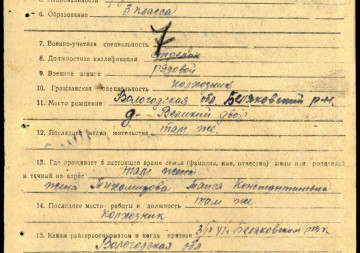 6. Образование 3 класса
7. Военно-учетная специальность
8. Должностная квалификация стрелок
9. Военное звание рядовой
10. Гражданская специальность колхозник
11. Место рождения Вологодская обл. Беляковский р-н.
д- Великий двор
12. Последнее место жительства там же.
13. Где проживает в настоящее время семья (фамилия, имя, отчество) жены или родителей
и точный их адрес там же
жена Тихомирова Таися Константиновна
14. Последнее место работы и должность там же
колхозник
15. Каким райгорвоенкоматом и когда призван Беляковским РВК
Вологодская обл